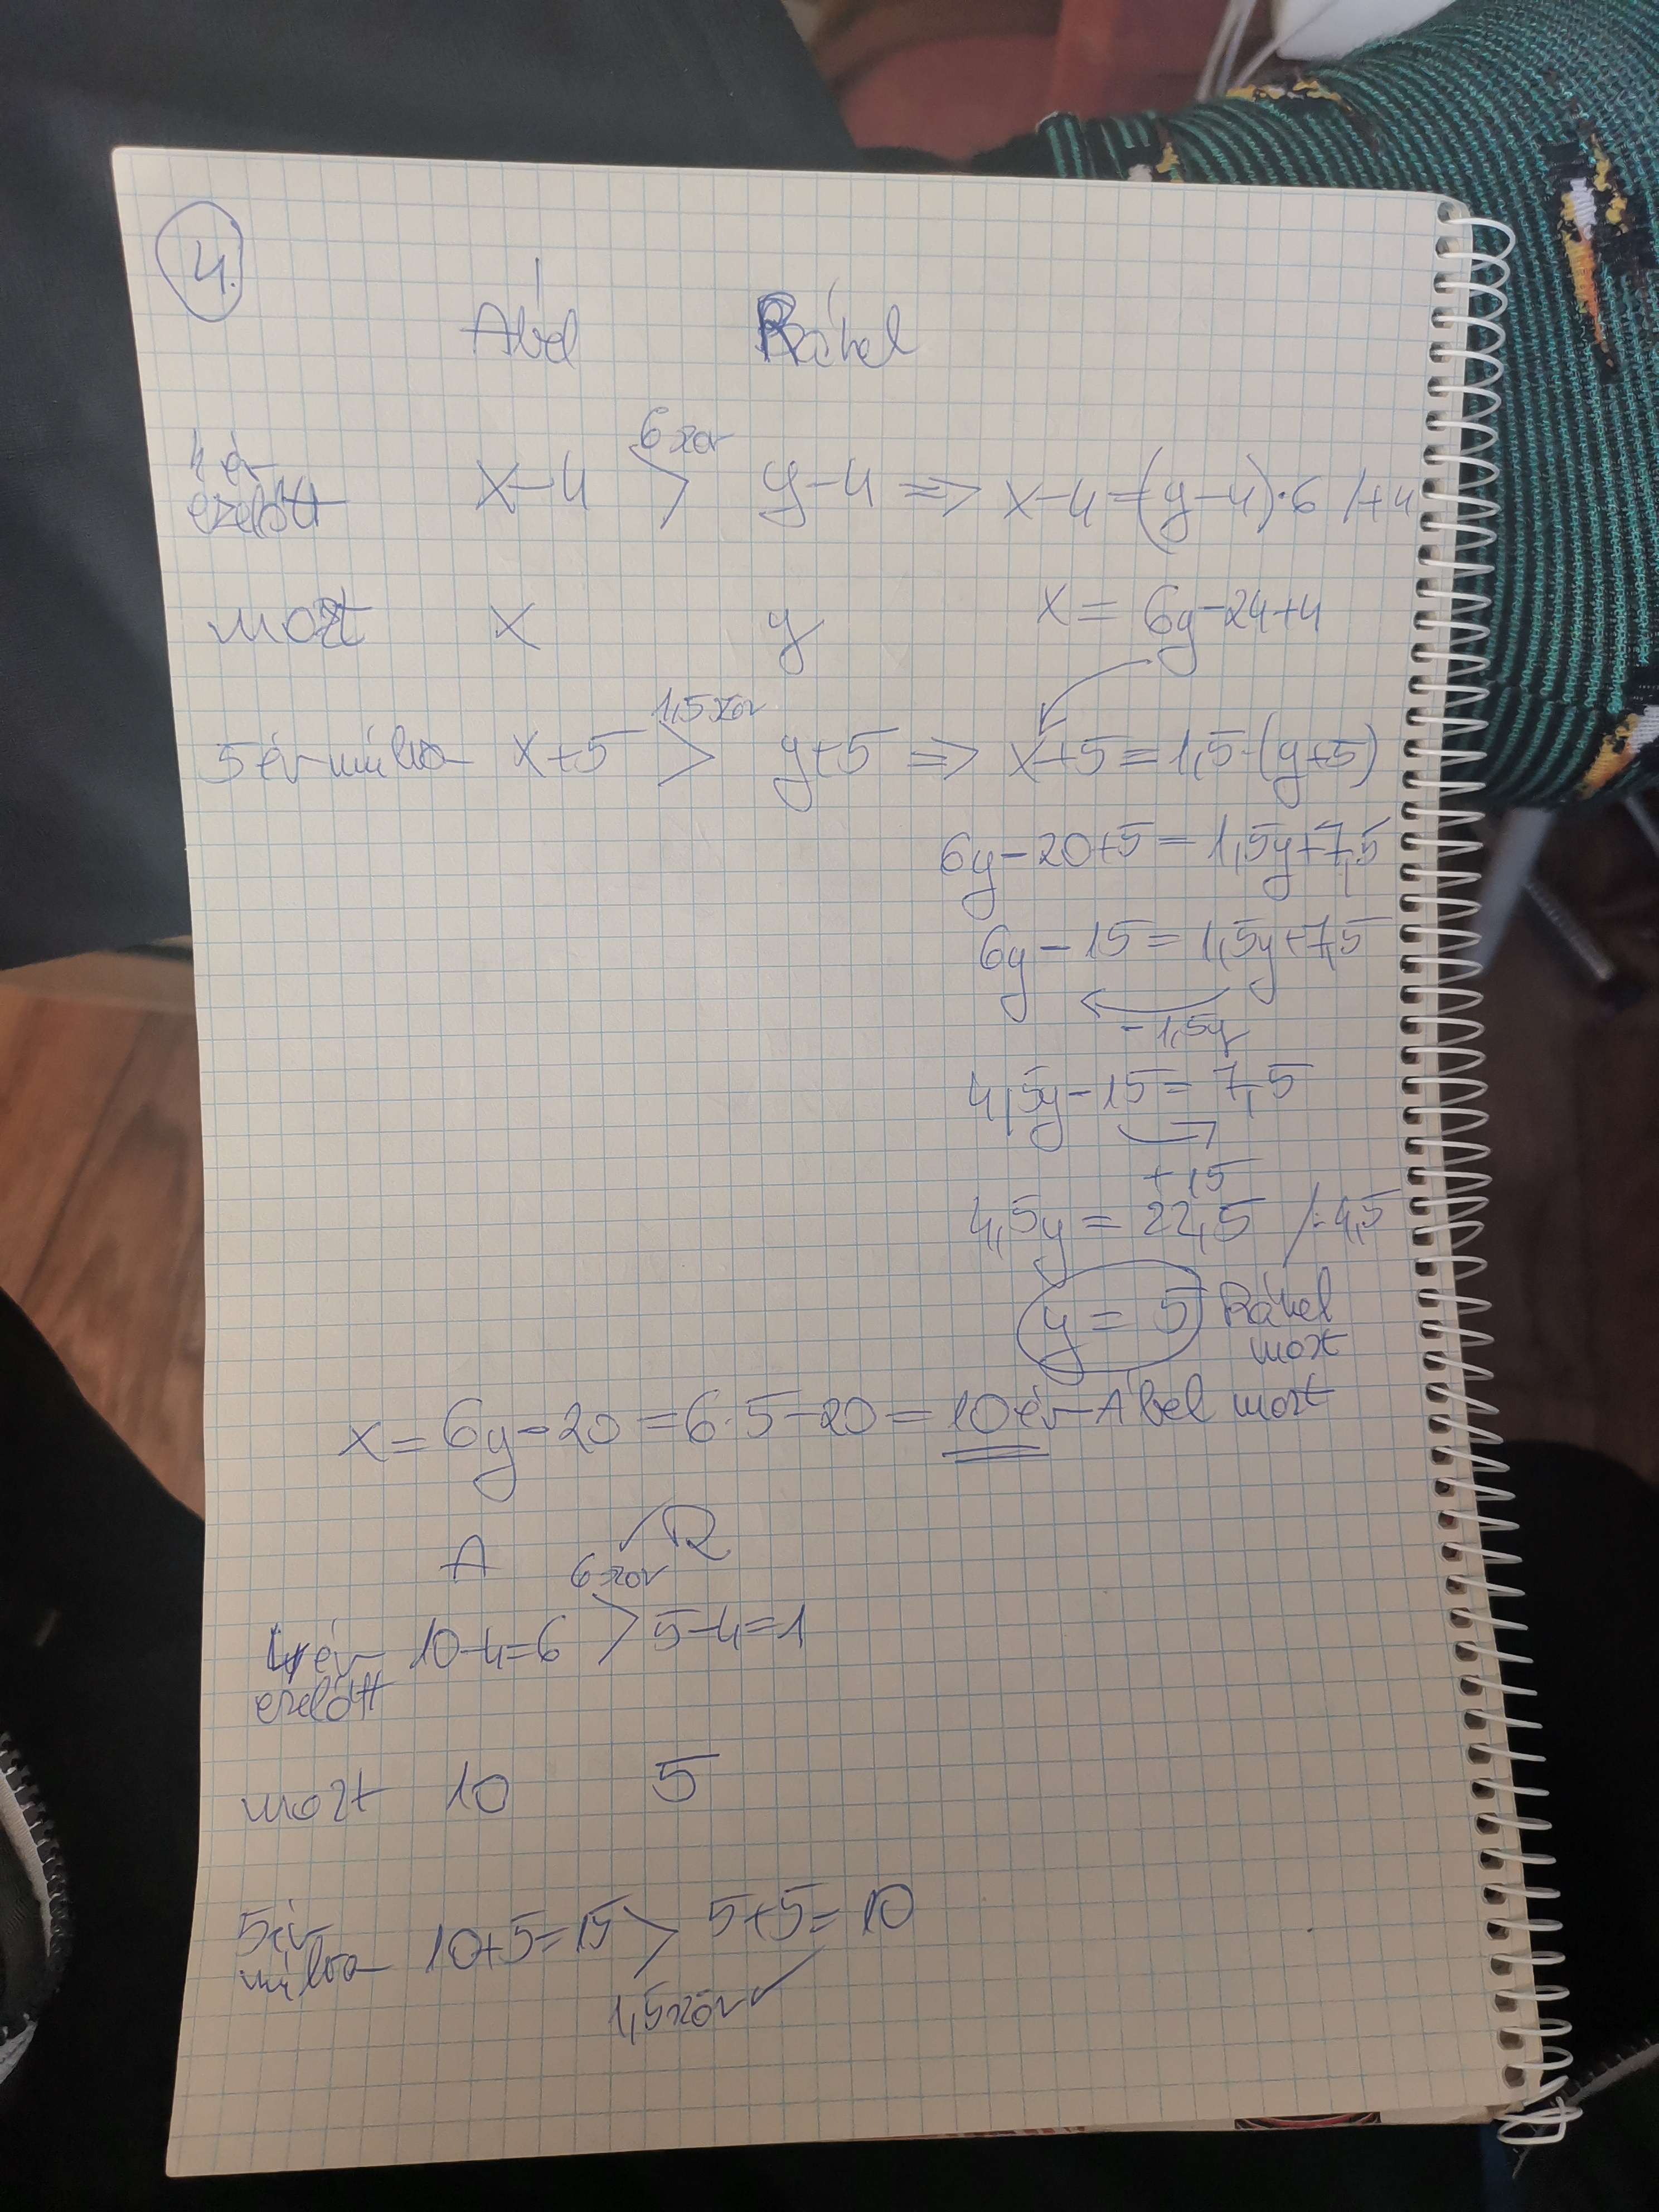 4.
Ábel Ráhel
6 szor
4 év
ezelőtt x-4 > y-4 => x-4=(y-4)·6 /+4
most x y x = 6y-24+4
1,5szor
5 év múlva x+5 > y+5 => x+5=1,5·(y+5)
6y-20+5=1,5y+7,5
6y-15=1,5y+7,5
-1,5y
4,5y-15=7,5
+15
4,5y=22,5 /:4,5
y=5 Ráhel
most
x=6y-20=6·5-20=10év Ábel most
A R
6-szor
4 év 10-4=6 > 5-4=1
ezelőtt
most 10 5
5 év
múlva 10+5=15 > 5+5=10
1,5szor